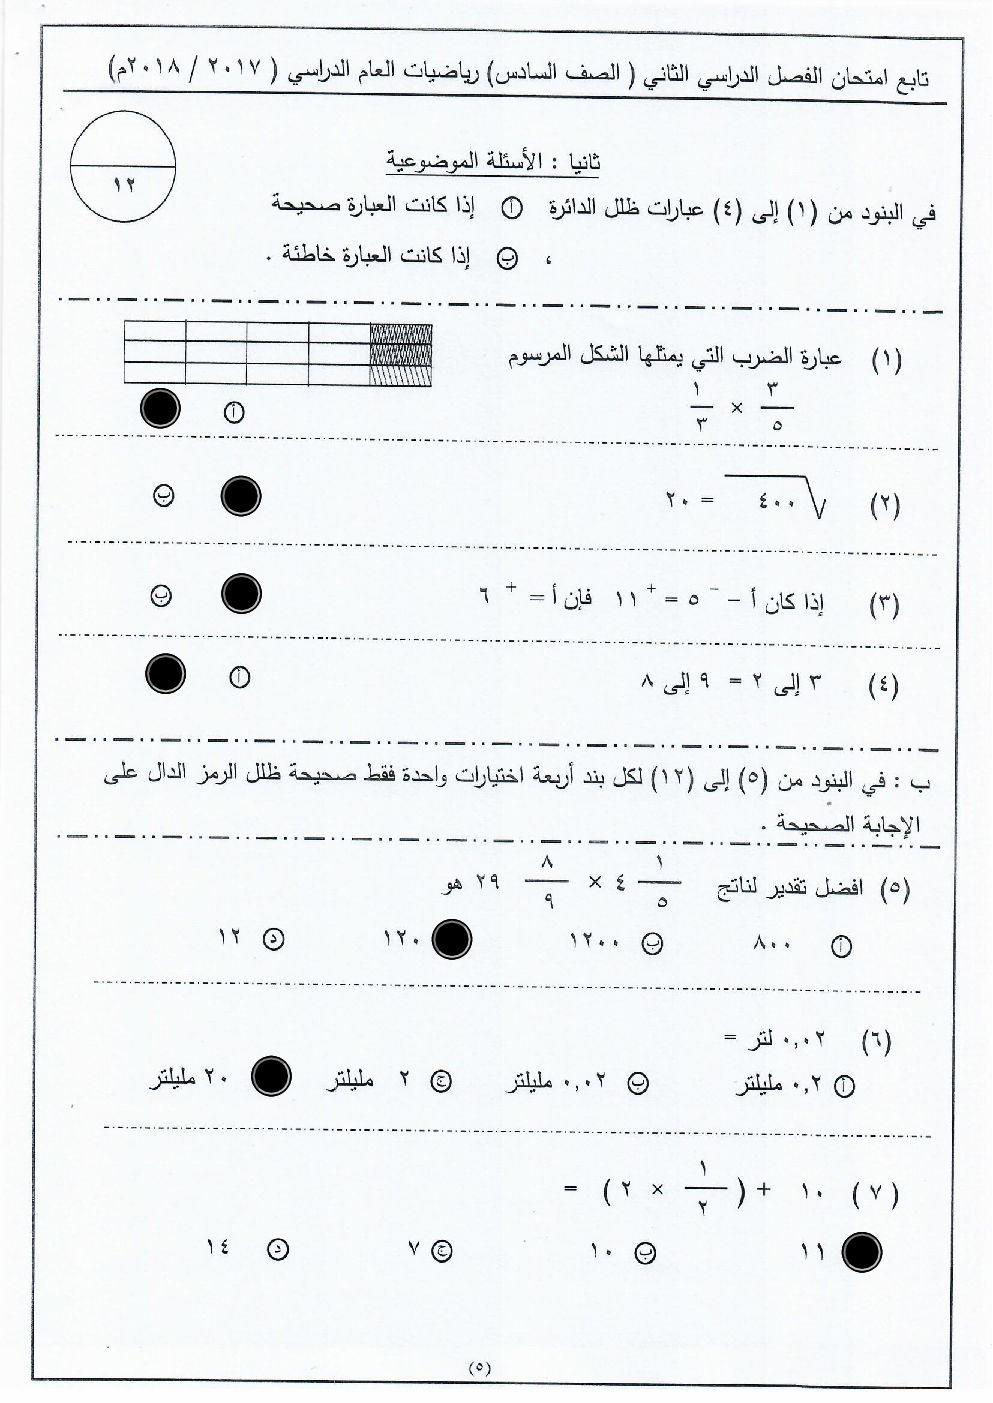 تابع امتحان الفصل الدراسي الثاني ( الصف السادس) رياضيات العام الدراسي ( ٢٠١٧ / ٢٠١٨م)
١٢
ثانيا : الأسئلة الموضوعية
في البنود من (١) إلى (٤) عبارات ظلل الدائرة أ إذا كانت العبارة صحيحة
، ب إذا كانت العبارة خاطئة .
(١) عبارة الضرب التي يمثلها الشكل المرسوم
٣/٥ × ١/٣
أ
(٢) √٤٠٠ = ٢٠
ب
(٣) إذا كان أ – ⁻٥ = ⁺١١ فإن أ = ⁺٦
ب
(٤) ٣ إلى ٢ = ٩ إلى ٨
أ
ب : في البنود من (٥) إلى (١٢) لكل بند أربعة اختيارات واحدة فقط صحيحة ظلل الرمز الدال على
الإجابة الصحيحة .
(٥) افضل تقدير لناتج ٤ ١/٥ × ٢٩ ٨/٩ هو
أ ٨٠٠ ب ١٢٠٠ ١٢٠ د ١٢
(٦) ٠,٠٢ لتر =
أ ٠,٢ مليلتر ب ٠,٠٢ مليلتر ج ٢ مليلتر ٢٠ مليلتر
(٧) ١٠ + ( ١/٢ × ٢ ) =
١١ ب ١٠ ج ٧ د ١٤
(٥)